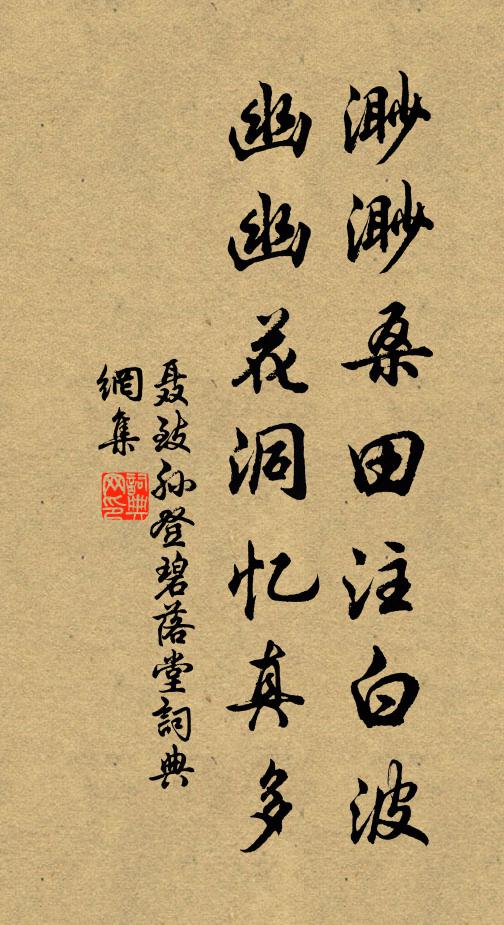 渺渺桑田注白波
幽幽花洞忆真多
聂致孙登碧落堂詞典
網集
詞典
网印